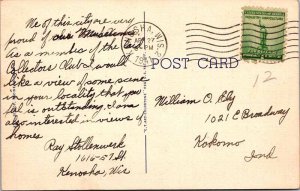 We of this city are very
proud of our Museum
as a member of the
Collectors Club I would
like a view of some scene
in your locality that you
feel is outstanding. I am
also interested in views of
homes
Ray Stollenwerk
1616-57 St
Kenosha, Wis
KENOSHA, WIS.
APR 27
PM
POST CARD
12
William O. Ely
1021 E Broadway
Kokomo
Ind